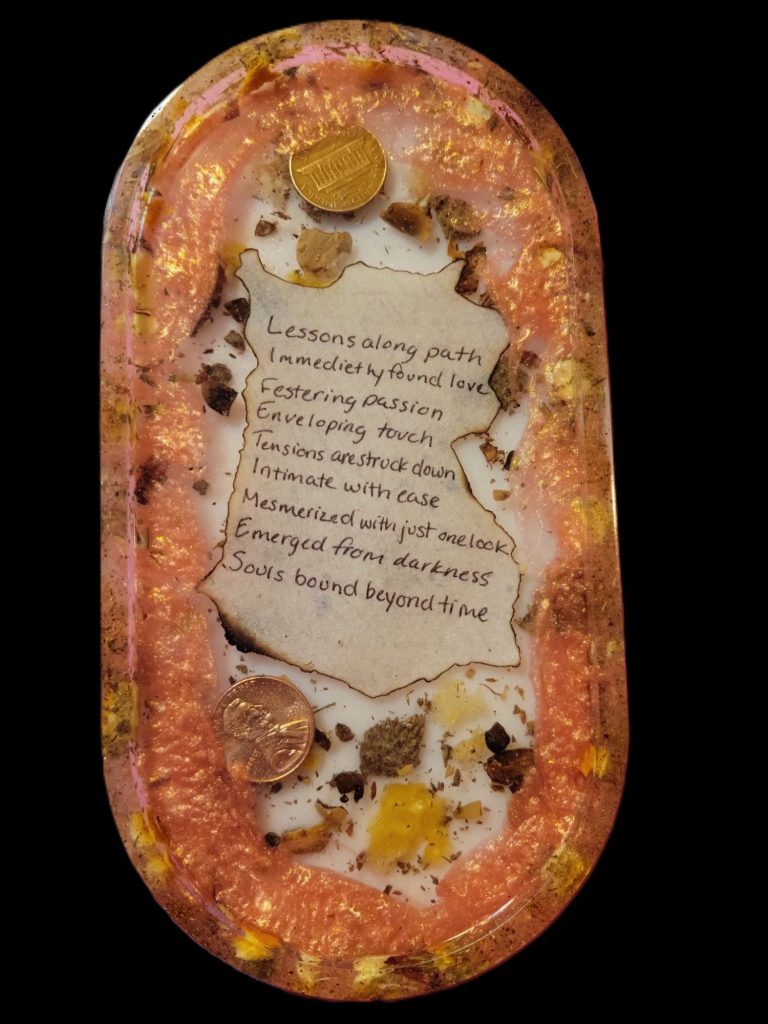 Lessons along path
Immediethy found love
Festering passion
Enveloping touch
Tensions are struck down
Intimate with ease
Mesmerized with just one look
Emerged from darkness
Souls bound beyond time